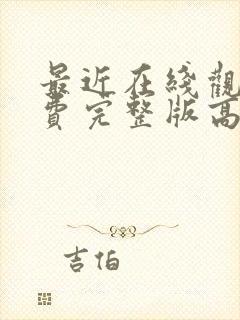 最近在綫觀
費完整版高
吉伯